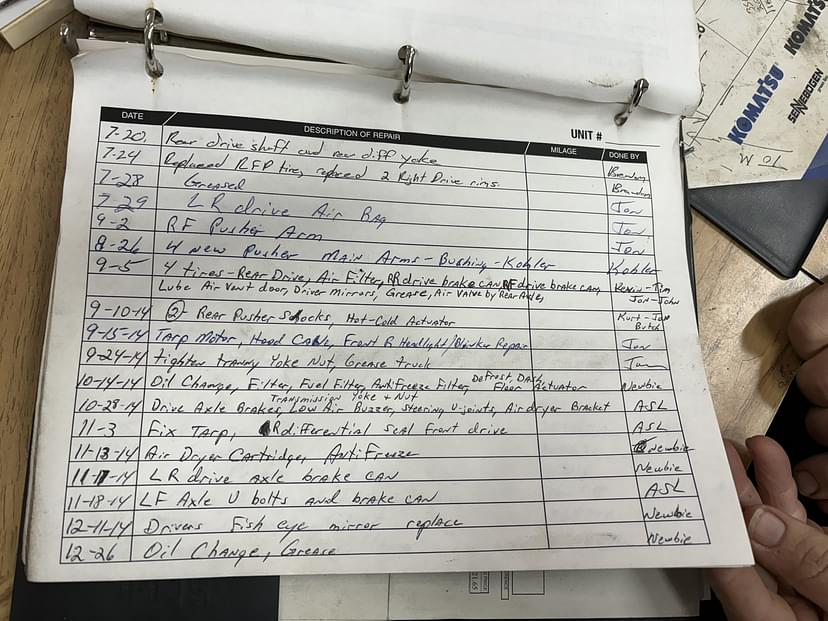 UNIT #
DATE DESCRIPTION OF REPAIR MILAGE DONE BY
7-20. Rear drive shaft and rear diff yoke Brandon
7-24 Replaced RFP tire, replaced 2 Right Drive rims. Brandon
7-28 Greased Jon
7-29 LR drive Air Bag Jon
9-2 RF Pusher Arm Jon
8-26 4 new Pusher Main Arms - Bushing - Kohler Kohler
9-5 4 tires - Rear Drive, Air Filter, RR drive brake CAN, RF drive brake can, Kevin - Tim
Lube Air vent door, Driver mirrors, Grease, Air Valve by Rear Axle, Jon - John
9-10-14 (2) Rear Pusher Shocks, Hot-Cold Actuator Kurt - Jon
Butch
9-15-14 Tarp Motor, Hood Cable, Front R Headlight/Blinker Repair Jon
9-24-14 tighten tranny Yoke Nut, Grease truck
10-14-14 Oil Change, Filter, Fuel Filter, AntiFreeze Filter, DeFrost Dash Floor Actuator Newbie
Transmission Yoke + Nut
10-28-14 Drive Axle Brakes, Low Air Buzzer, Steering U-joints, Air dryer Bracket ASL
11-3 Fix Tarp, R differential Seal Front drive ASL
11-13-14 Air Dryer Cartridge, AntiFreeze Newbie
11-17-14 LR drive axle brake CAN Newbie
11-18-14 LF Axle U bolts and brake CAN ASL
12-11-14 Drivers Fish eye mirror replace Newbie
12-26 Oil Change, Grease Newbie
KOMATSU
KOMATSU
SENNEBOGEN